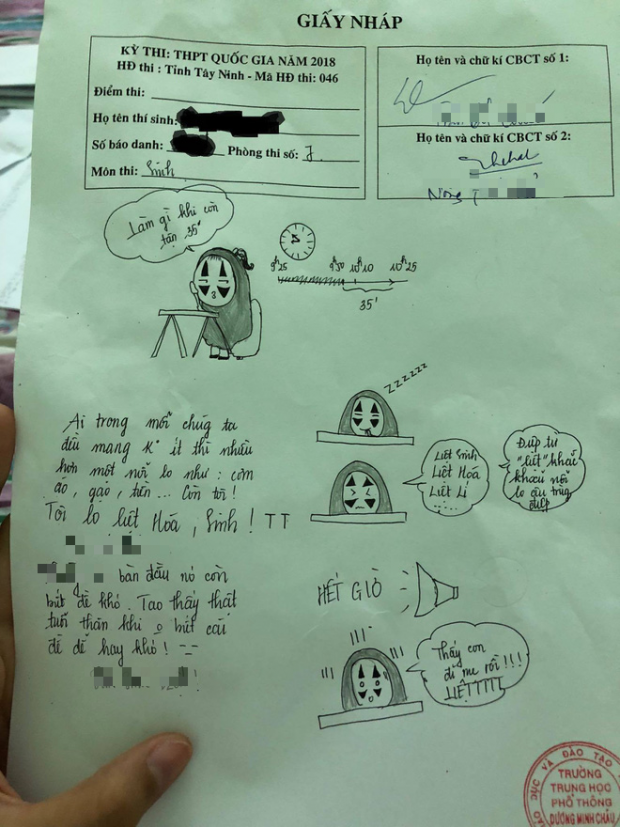 GIẤY NHÁP
KỲ THI: THPT QUỐC GIA NĂM 2018
HĐ thi : Tỉnh Tây Ninh - Mã HĐ thi: 046
Điểm thi:
Họ tên thí sinh:
Số báo danh: Phòng thi số: 7
Môn thi: Sinh
Họ tên và chữ kí CBCT số 1:
Họ tên và chữ kí CBCT số 2:
Làm gì khi còn
tận 35'
9h25 9h50 10h10 10h25
35'
zzzzzz
Ai trong mỗi chúg ta
đều mang k' ít thì nhiều
hơn một nỗi lo như : cơm
áo, gạo, tiền ... Còn tôi!
Tôi lo liệt Hoá, Sinh! TT
Liệt Sinh
Liệt Hoá
Liệt Lí
.....
"liệt" khắc
khoải nỗi
lo
bàn đầu nó còn
biết đề khó. Tao thấy thật
tủi thân khi o biết cái
đề dễ hay khó! =-=
HẾT GIỜ
Thấy con
đi mẹ rồi!!!
LIỆTTTTT
DỤC VÀ ĐÀO TẠO
TRƯỜNG
TRUNG HỌC
PHỔ THÔNG
DƯƠNG MINH CHÂU